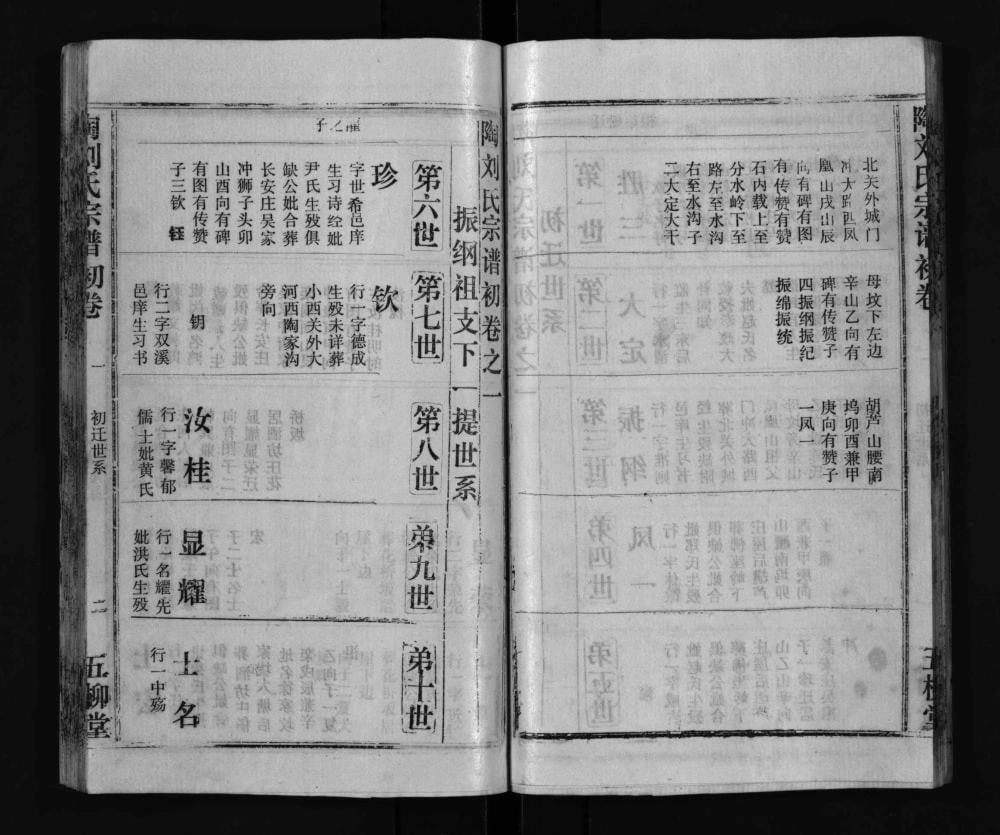 北关外城门
冲大路西凤
凰山戌山辰
向有碑有图
有传赞有赞
石内载上至
分水岭下至
路左至水沟
右至水沟子
二大定大干
母坟下左边
辛山乙向有
碑有传赞子
四振纲振纪
振绵振统
胡芦山腰南
坞卯酉兼甲
庚向有赞子
一凤一
陶刘氏宗谱初卷之一
振纲祖支下一提世系
第六世
珍
字世希邑庠
生习诗经妣
尹氏生殁俱
缺公妣合葬
长安庄吴家
冲狮子头卯
山酉向有碑
有图有传赞
子三钦 钰
第七世
钦
行一字德成
生殁未详葬
小西关外大
河西陶家沟
旁向
钥
行二字双溪
邑庠生习书
第八世
汝桂
行一字馨郁
儒士妣黄氏
弟九世
显耀
行一名耀先
妣洪氏生殁
弟十世
士名
行一中殇
初迁世系
二
五柳堂